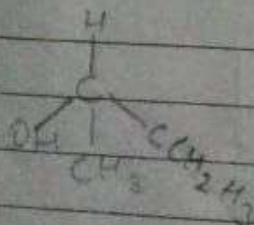 H
C
OH
CH3
CCH2H3